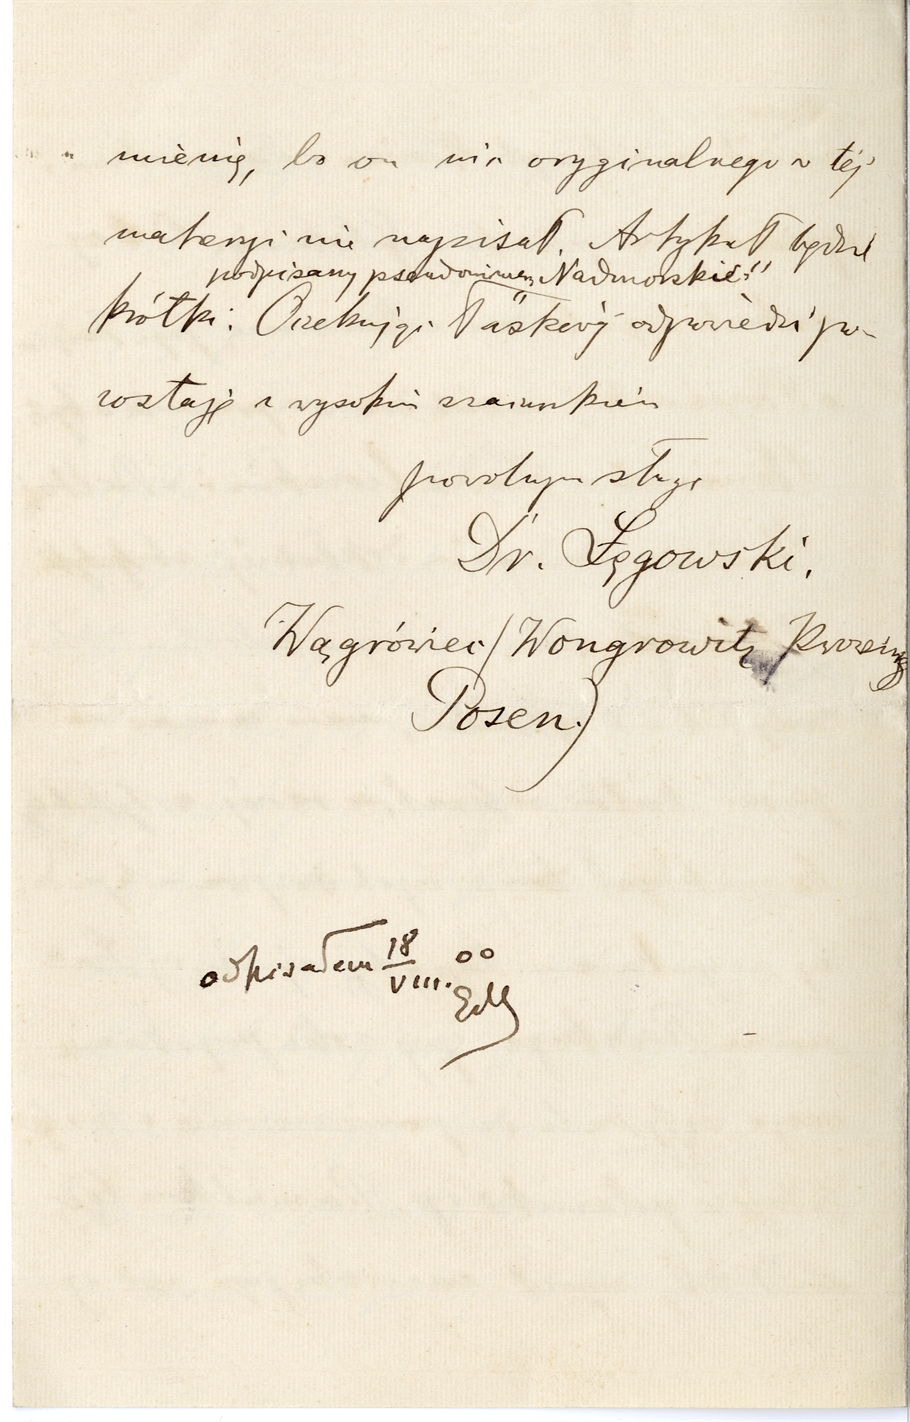 mienię, bo on nic oryginalnego w tej
materyi nie napisał. Artykuł będzie
podpisany pseudonimem „Nadmorskiej"
krótki. Oczekując łaskawej odpowiedzi po-
zostaję z wysokim szacunkiem
powolnym sługą
Dr. Łęgowski.
Wągrówiec (Wongrowitz Prowinz
Posen.)
odpisałem 18/VIII. 00